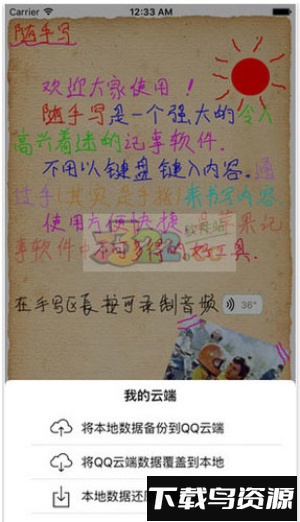 Carrier 12:33 AM
随手写
欢迎大家使用！
随手写是一个强大的令人
高兴着迷的记事软件.
不用以键盘键入内容.通
过手(其实是手指)来书写内容.
使用方便快捷.是苹果记
事软件中不可多得的好工具.
在手写区长按可录制音频 36"
我的云端
将本地数据备份到QQ云端
将QQ云端数据覆盖到本地
本地数据还原
下载鸟资源